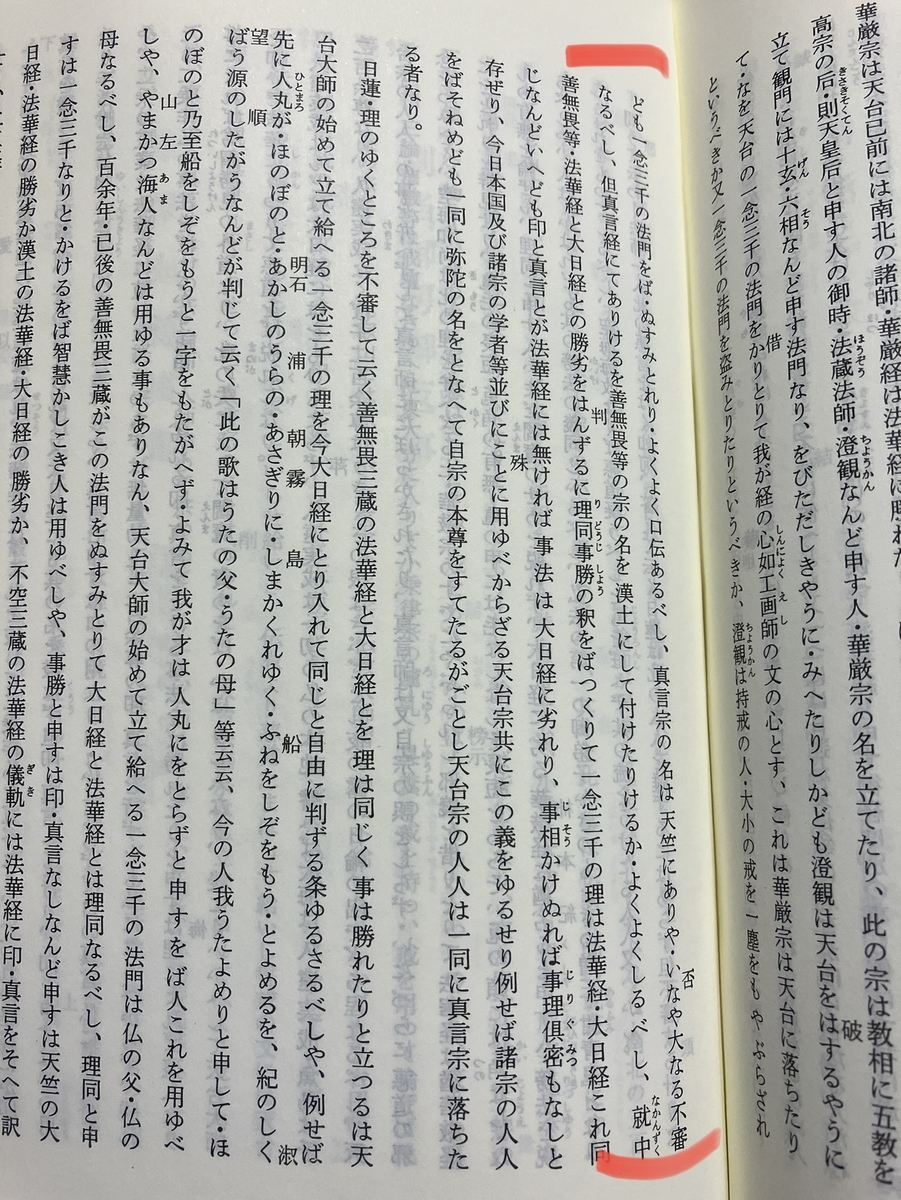 華厳宗は天台已前には南北の諸師・華厳経は法華経に勝れた
高宗の后・則天皇后と申す人の御時・法蔵法師・澄観なんど申す人・華厳宗の名を立てたり、此の宗は教相に五教を
立て観門には十玄・六相なんど申す法門なり、をびただしきやうに・みへたりしかども澄観は天台をはするやうに
て・なを天台の一念三千の法門をかりとりて我が経の心如工画師の文の心とす、これは華厳宗は天台に落ちたり
というべきか又一念三千の法門を盗みとりたりというべきか、澄観は持戒の人・大小の戒を一塵をもやぶらされ
ども一念三千の法門をば・ぬすみとれり・よくよく口伝あるべし、真言宗の名は天竺にありや・いなや大なる不審
なるべし、但真言経にてありけるを善無畏等の宗の名を漢土にして付けたりけるか・よくよくしるべし、就中
善無畏等・法華経と大日経との勝劣をはんずるに理同事勝の釈をばつくりて一念三千の理は法華経・大日経これ同
じなんどいへども印と真言とが法華経には無ければ事法は大日経に劣れり、事相かけぬれば事理倶密もなしと
存ぜり、今日本国及び諸宗の学者等並びにことに用ゆべからざる天台宗共にこの義をゆるせり例せば諸宗の人人
をばそねめども一同に弥陀の名をとなへて自宗の本尊をすてたるがごとし天台宗の人人は一同に真言宗に落ちた
る者なり。
日蓮・理のゆくところを不審して云く善無畏三蔵の法華経と大日経とを理は同じく事は勝れたりと立つるは天
台大師の始めて立て給へる一念三千の理を今大日経にとり入れて同じと自由に判ずる条ゆるさるべしや、例せば
先に人丸が・ほのぼのと・あかしのうらの・あさぎりに・しまかくれゆく・ふねをしぞをもう・とよめるを、紀のしく
ばう源のしたがうなんどが判じて云く「此の歌はうたの父・うたの母」等云云、今の人我うたよめりと申して・ほ
のぼのと乃至船をしぞをもうと一字をもたがへず・よみて我が才は人丸にをとらずと申すをば人これを用ゆべ
しや、やまかつ海人なんどは用ゆる事もありなん、天台大師の始めて立て給へる一念三千の法門は仏の父・仏の
母なるべし、百余年・已後の善無畏三蔵がこの法門をぬすみとりて大日経と法華経とは理同なるべし、理同と申
すは一念三千なりと・かけるをば智慧かしこき人は用ゆべしや、事勝と申すは印・真言なしなんど申すは天竺の大
日経・法華経の勝劣か漢土の法華経・大日経の勝劣か、不空三蔵の法華経の儀軌には法華経に印・真言をそへて訳